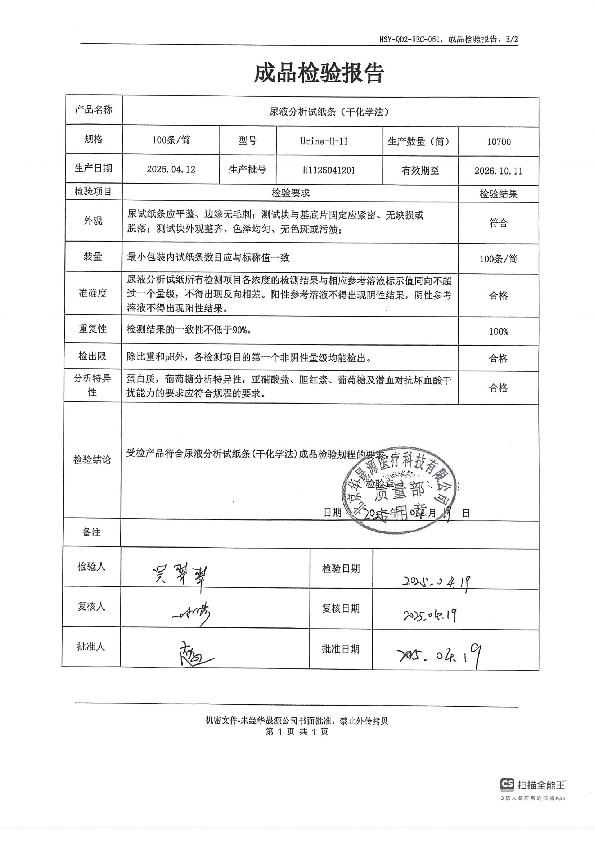 HSY-QD2-REC-051, 成品检验报告, E/2
成品检验报告
产品名称 尿液分析试纸条（干化学法）
规格 100条/筒 型号 Urine-H-11 生产数量（筒） 10700
生产日期 2025.04.12 生产批号 H1125041201 有效期至 2026.10.11
检验项目 检验要求 检验结果
外观 尿试纸条应平整、边缘无毛刺；测试块与基底片固定应紧密、无缺损或
脱落；测试块外观整齐、色泽均匀、无色斑或污渍； 符合
装量 最小包装内试纸条数目应与标称值一致 100条/筒
准确度 尿液分析试纸所有检测项目各浓度的检测结果与相应参考溶液标示值同向不超
过一个量级，不得出现反向相差。阳性参考溶液不得出现阴性结果，阴性参考
溶液不得出现阳性结果。 合格
重复性 检测结果的一致性不低于90%。 100%
检出限 除比重和pH外，各检测项目的第一个非阴性量级均能检出。 合格
分析特异性 蛋白质，葡萄糖分析特异性，亚硝酸盐、胆红素、葡萄糖及潜血对抗坏血酸干
扰能力的要求应符合规程的要求。 合格
检验结论 受检产品符合尿液分析试纸条(干化学法)成品检验规程的要求。
北京华晟源医疗科技有限公司
质量部
专用章
日期 2025年 04月 19 日
备注
检验人 检验日期 2025.04.19
复核人 复核日期 2025.04.19
批准人 批准日期 2025.04.19
机密文件-未经华晟源公司书面批准，禁止外传拷贝
第 1 页 共 1 页
CS 扫描全能王
3亿人都在用的扫描App